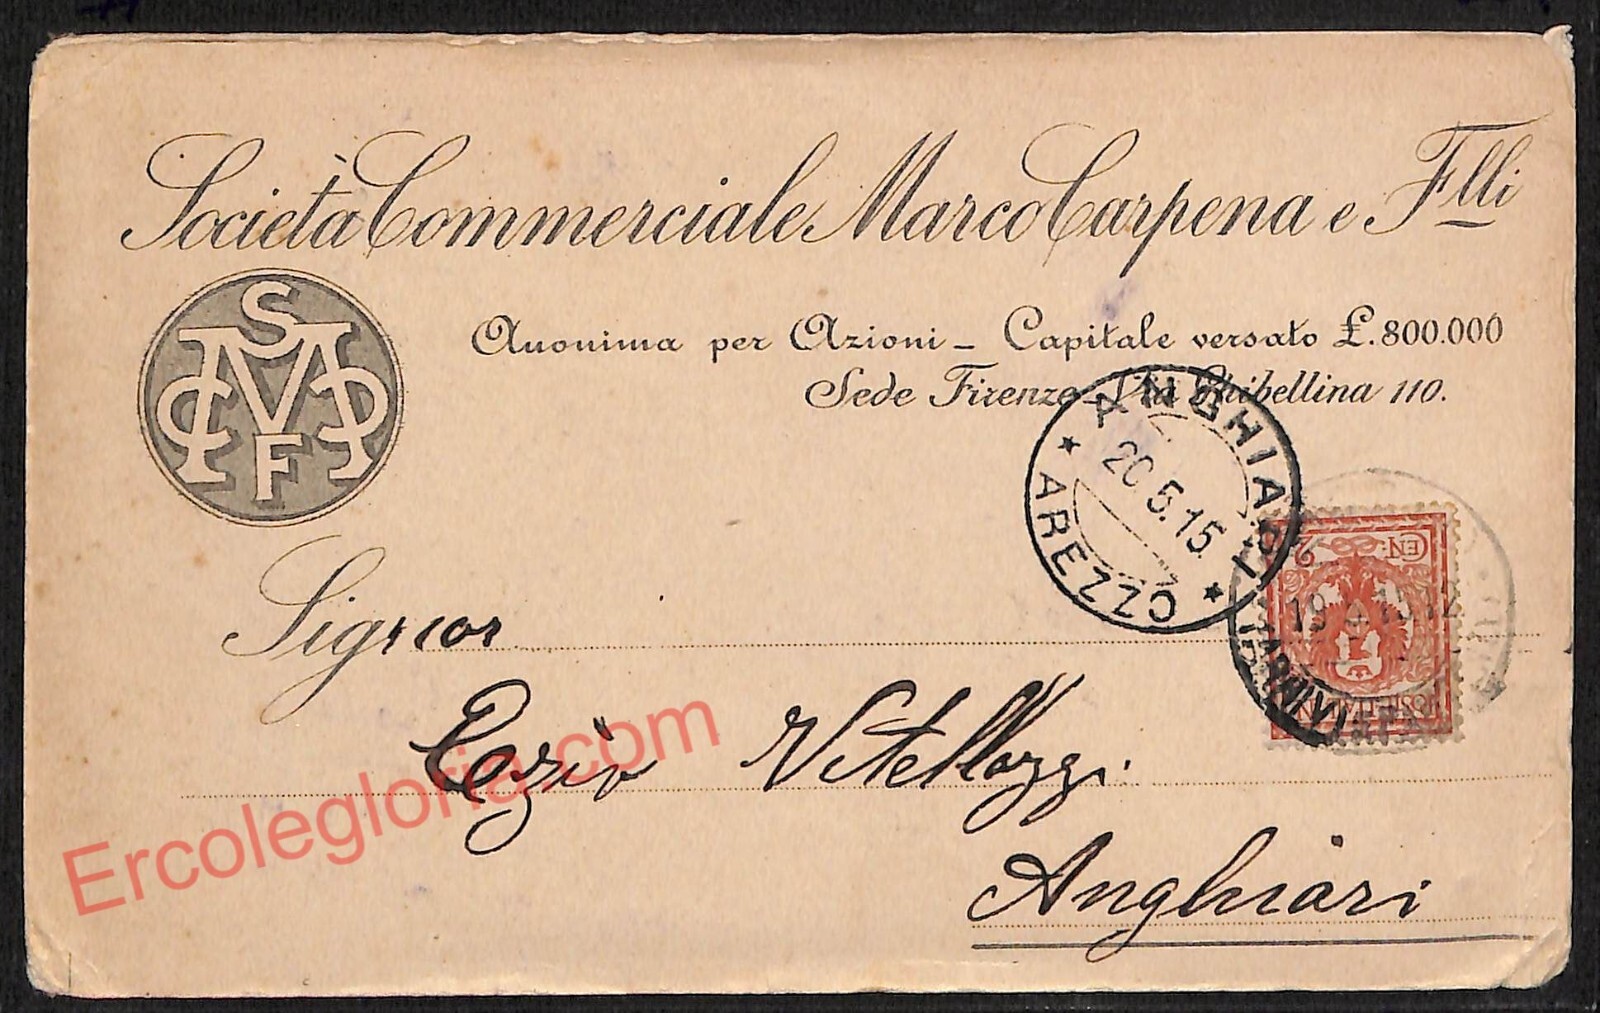 Società Commerciale Marco Carpena e Flli
Anonima per Azioni - Capitale versato £. 800.000
Sede Firenze - Via Ghibellina 110.
S
M
C P
F
ANGHIARI
20.5.15.
* AREZZO *
CEN. 2
POSTE ITALIANE
19 15 12
Signor
Ezio Vitellozzi
Anghiari
Ercolegloria.com